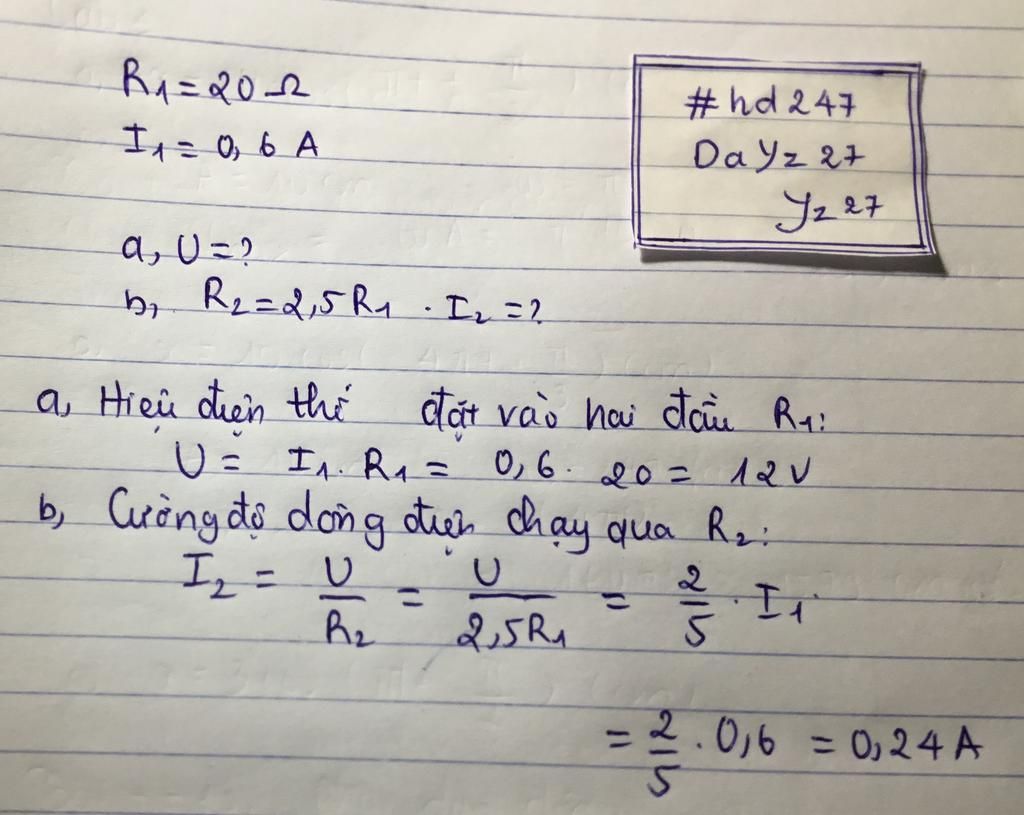 R1 = 20 Ω
I1 = 0,6 A
#hd247
DaYz27
Yz27
a, U = ?
b, R2 = 2,5 R1 . I2 = ?
a, Hiệu điện thế đặt vào hai đầu R1:
U = I1 . R1 = 0,6 . 20 = 12V
b, Cường độ dòng điện chạy qua R2:
I2 = U/R2 = U/2,5R1 = 2/5 . I1
= 2/5 . 0,6 = 0,24 A